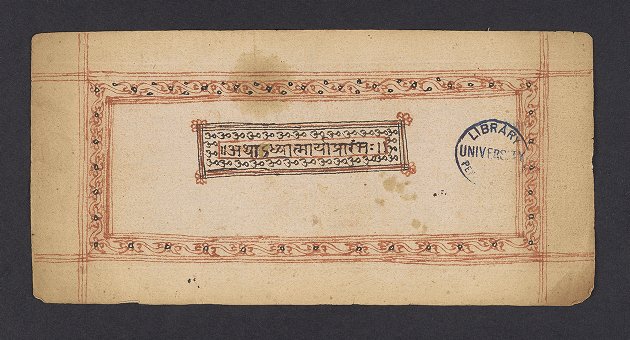 ॥अथाऽध्यात्मार्याप्रारंभः॥
LIBRARY
UNIVERSITY